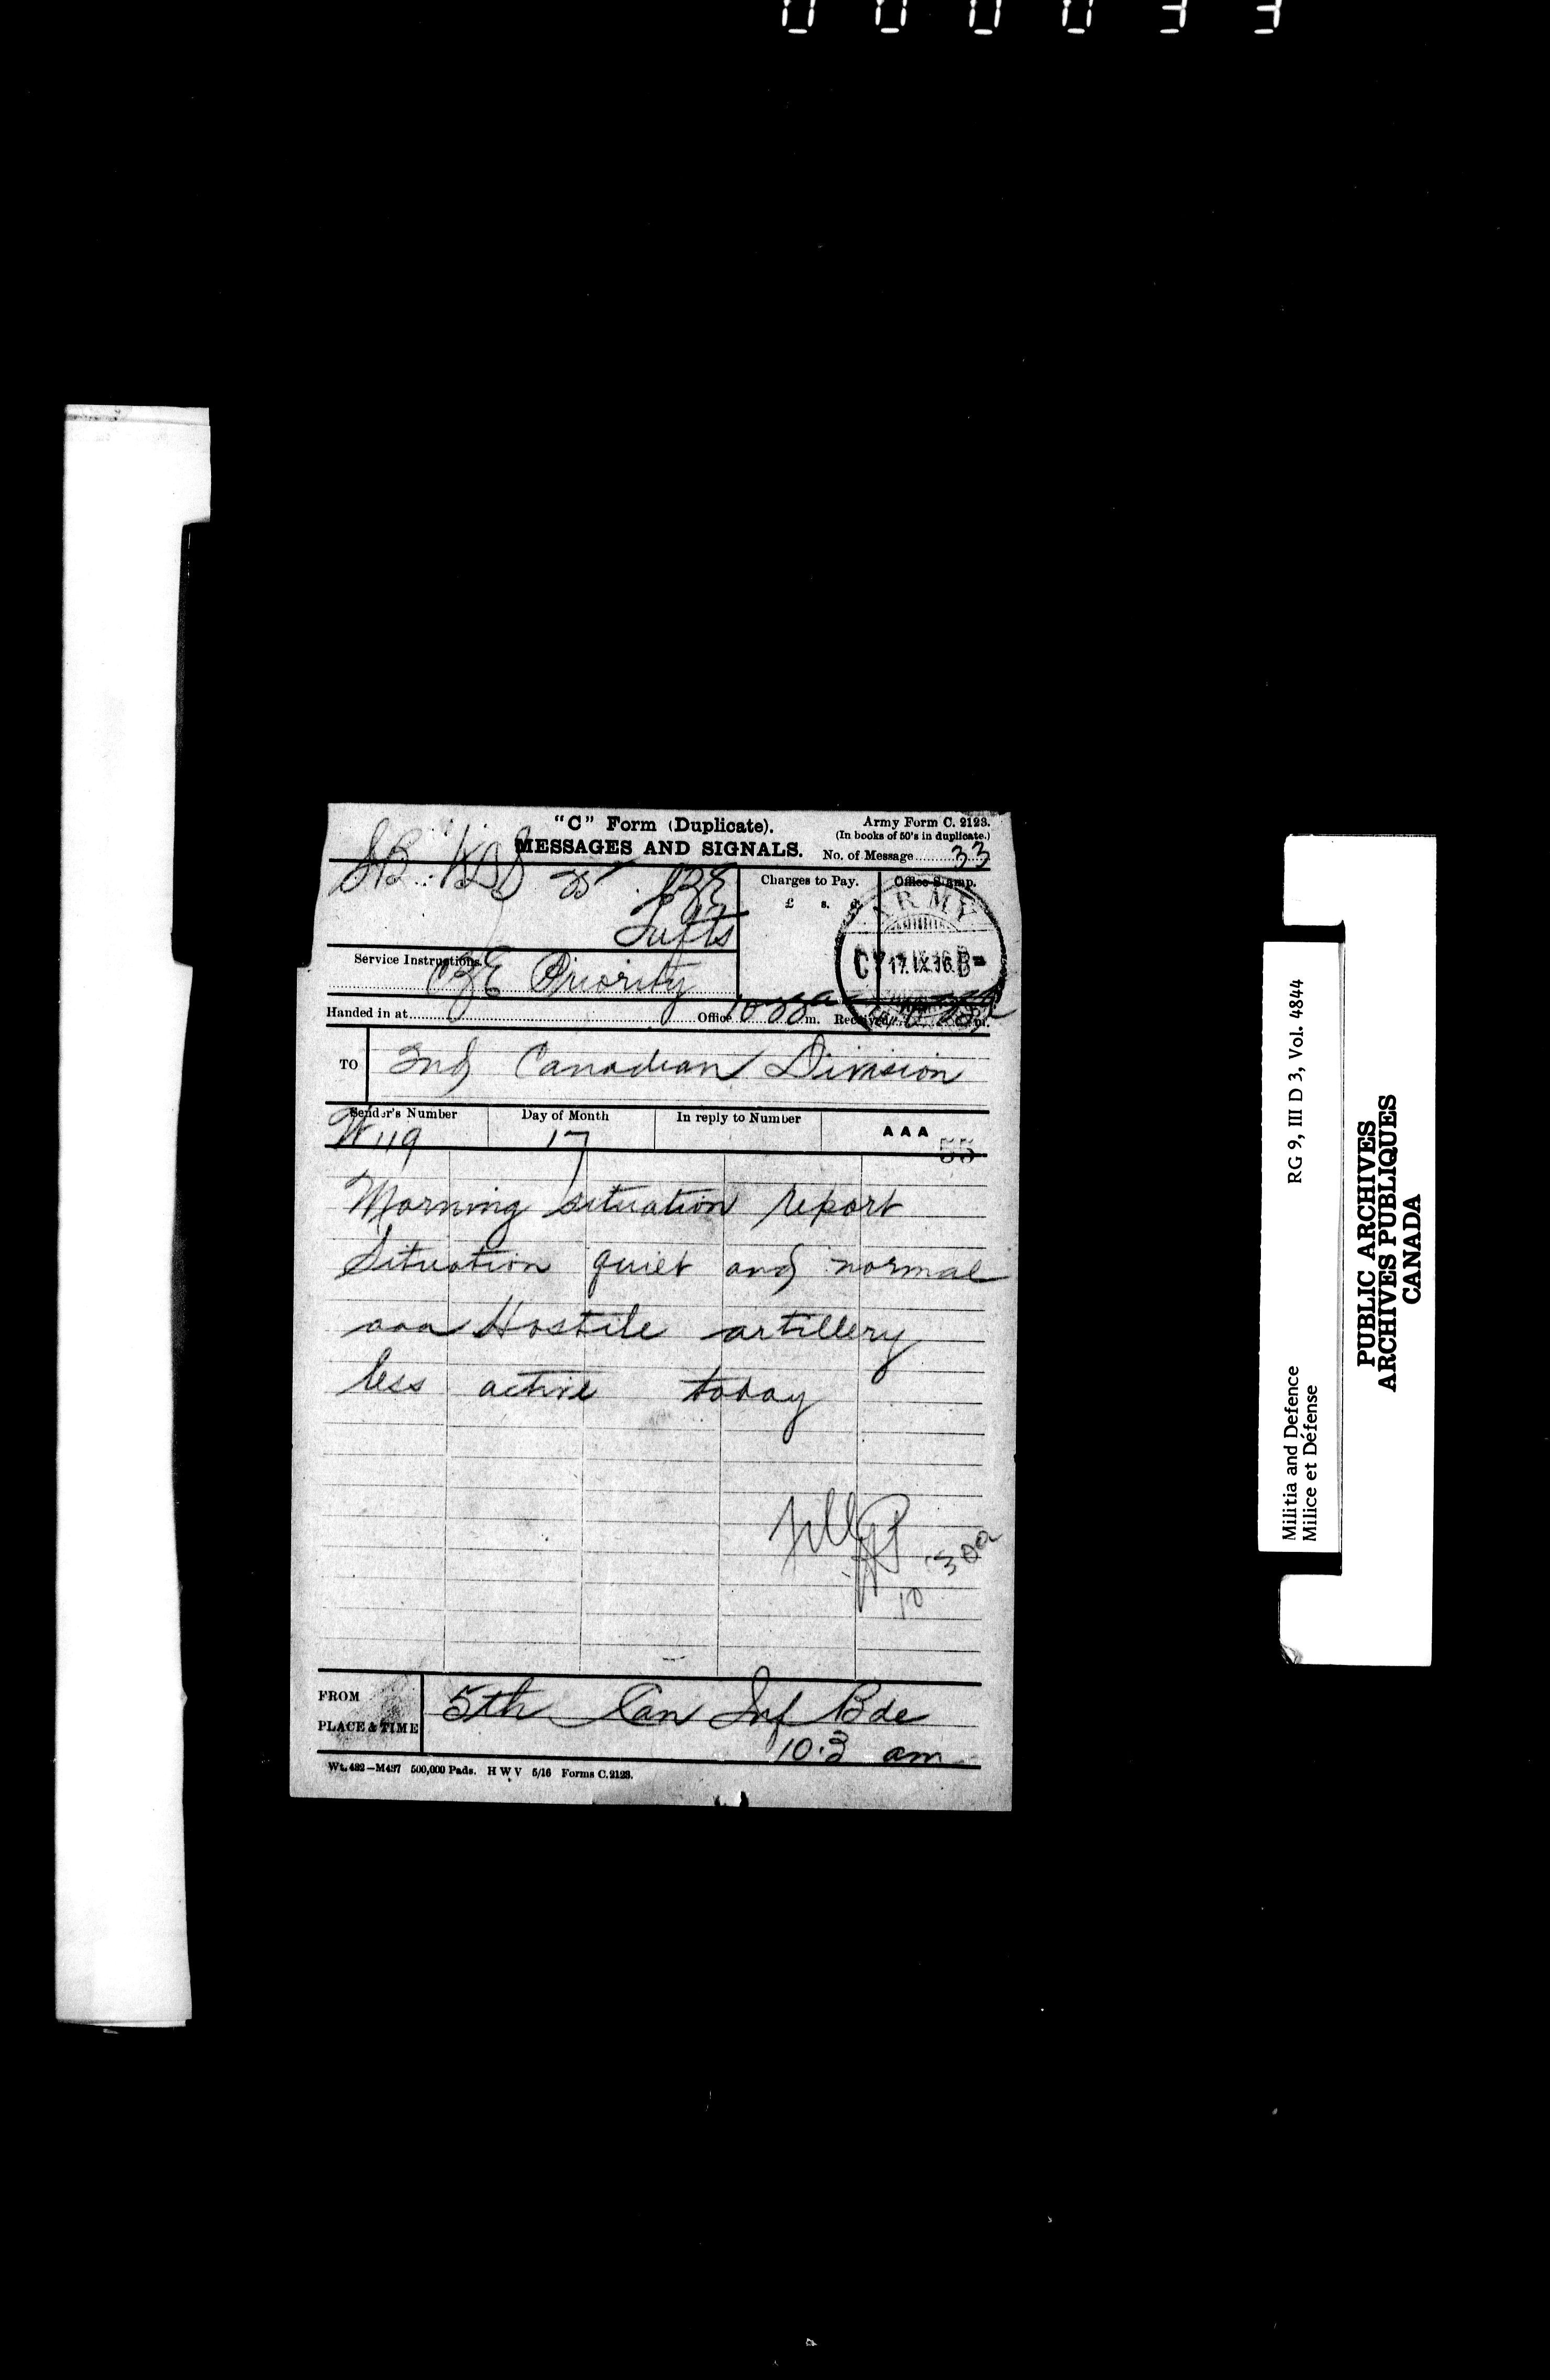 000033
"C" Form (Duplicate).
Army Form C. 2123.
(In books of 50's in duplicate.)
MESSAGES AND SIGNALS.
No. of Message 33
Charges to Pay.
£ s. d.
Office Stamp.
ARMY
17.IX.16
Service Instructions.
CZE Priority
Handed in at Office m. Received m.
TO
2nd Canadian Division
Sender's Number
Day of Month
In reply to Number
AAA
W119
17
55
Morning situation report
Situation quiet and normal
aaa Hostile artillery
less active today
10 30a
FROM
PLACE & TIME
5th Can Inf Bde
10.3 am
Wt. 432—M437 500,000 Pads. H W V 5/16 Forms C.2123.
Militia and Defence
Milice et Défense
RG 9, III D 3, Vol. 4844
PUBLIC ARCHIVES
ARCHIVES PUBLIQUES
CANADA